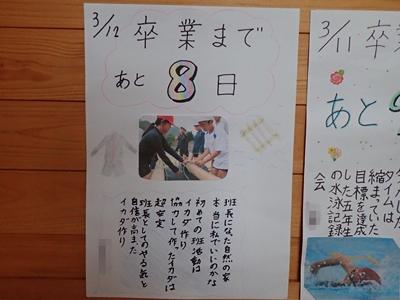 3/12 卒業まで
あと 8 日
班長になった自然の家
本当に私でいいのかな
初めての班活動は
イカダ作り
協力して作ったイカダは
超安定
班長としてのやる気と
自信が高まった
イカダ作り
3/11 卒
あと
タイムは
縮まっていた
目標を達成
した五年生
の水泳記録
会